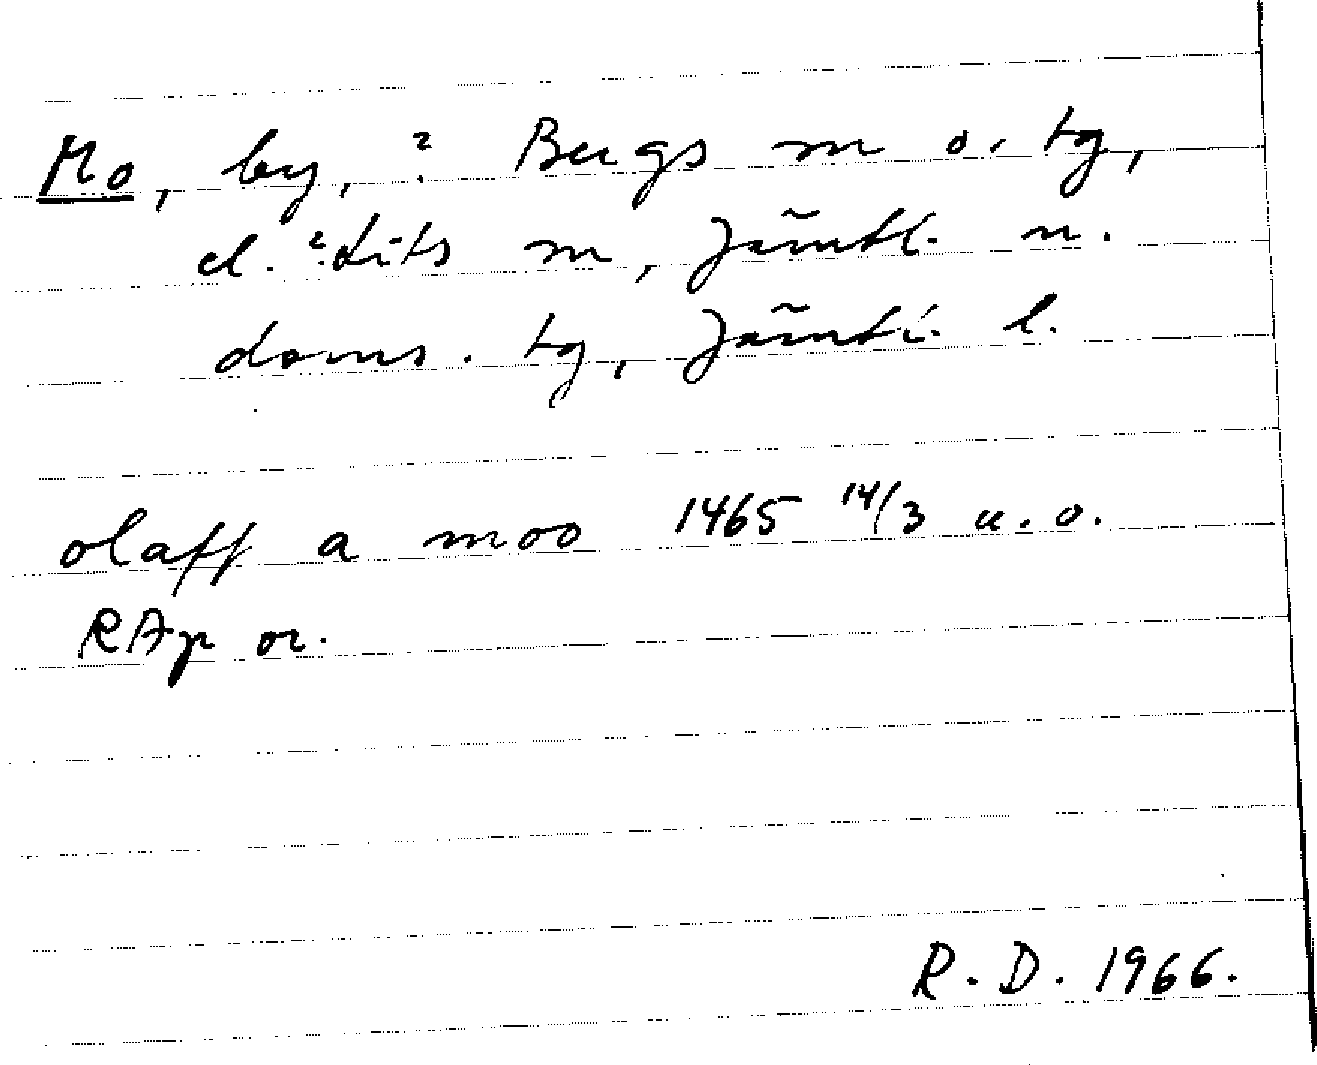 Mo, by, ? Bergs m o. tg,
el. ? Lits m, Jämtl. n.
doms. tg, Jämtl. l.
olaff a moo 1465 14/3 u.o.
RAp or.
R.D. 1966.